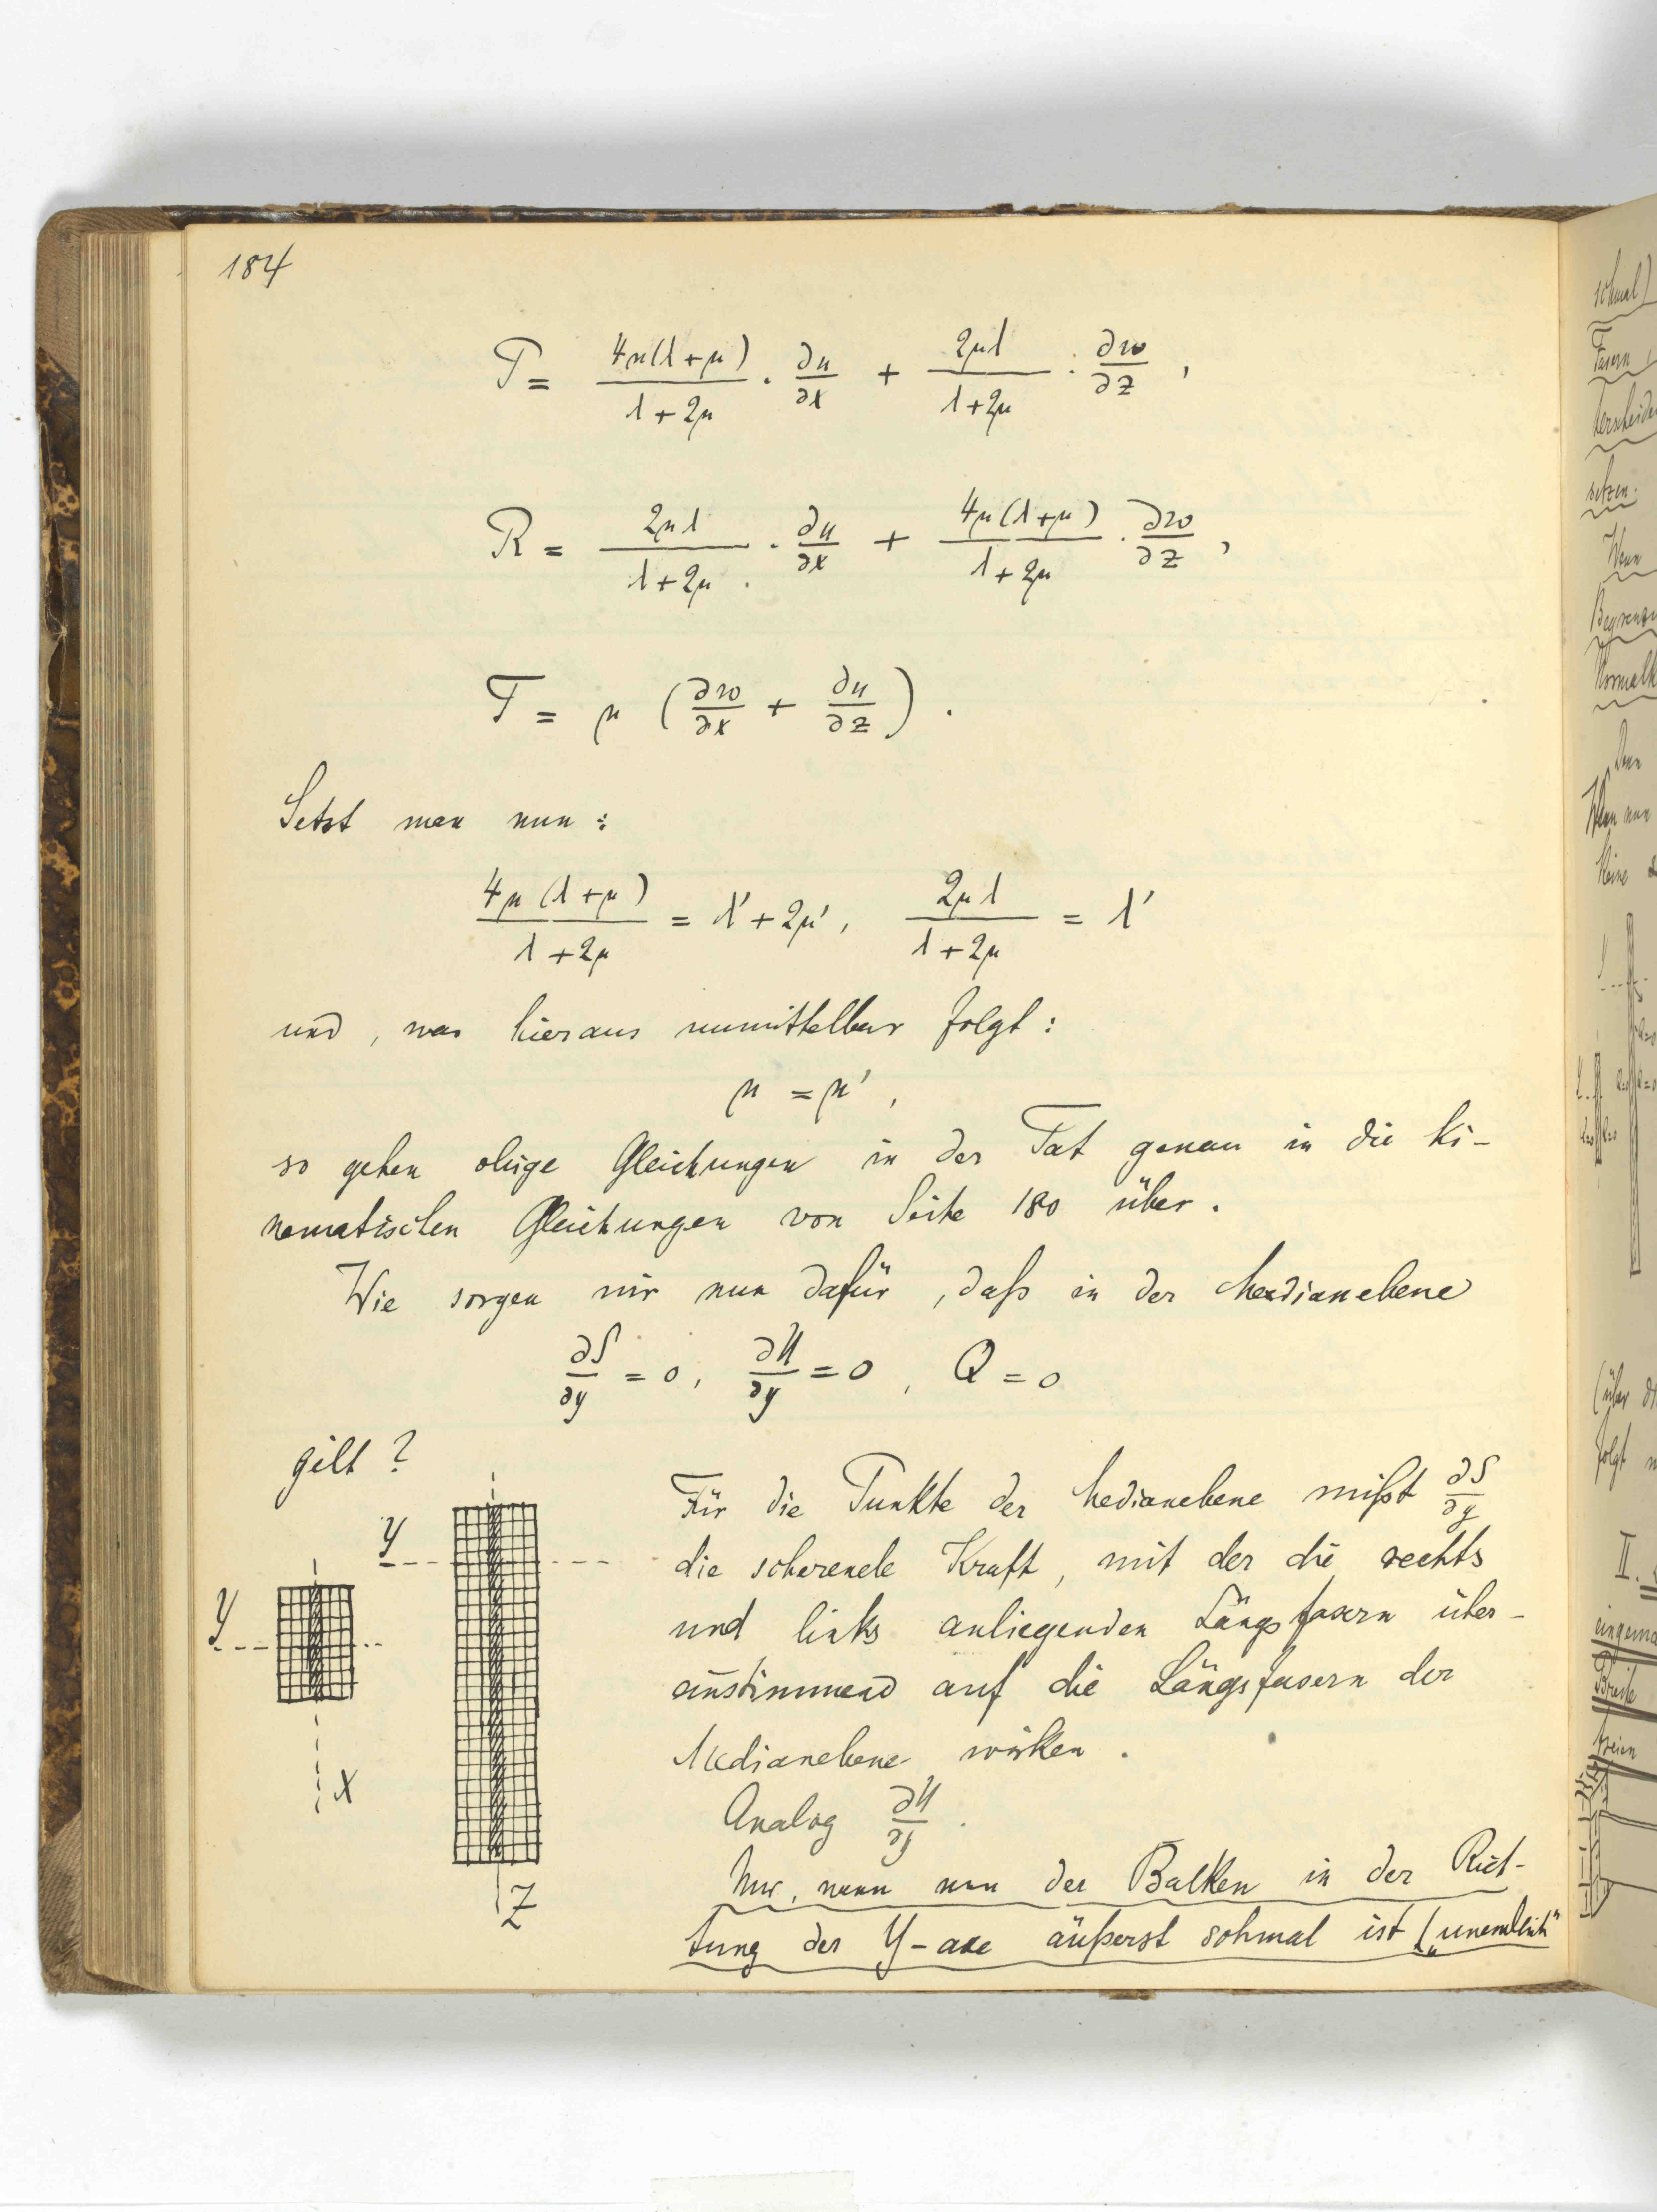 184
P = 4μ(λ+μ)/(λ+2μ) · ∂u/∂x + 2μλ/(λ+2μ) · ∂w/∂z ,
R = 2μλ/(λ+2μ) · ∂u/∂x + 4μ(λ+μ)/(λ+2μ) · ∂w/∂z ,
T = μ (∂w/∂x + ∂u/∂z) .
Setzt man nun :
4μ(λ+μ)/(λ+2μ) = λ' + 2μ' , 2μλ/(λ+2μ) = λ'
und , was hieraus unmittelbar folgt :
μ = μ' ,
so gehen obige Gleichungen in der Tat genau in die ki-
nematischen Gleichungen von Seite 180 über .
Wie sorgen wir nun dafür , daß in der Medianebene
∂S/∂y = 0 , ∂U/∂y = 0 , Q = 0
gilt ?
Für die Punkte der Medianebene mißt ∂S/∂y
die scherende Kraft , mit der die rechts
und links anliegenden Längsfasern über-
einstimmend auf die Längsfasern der
Medianebene wirken .
Analog ∂U/∂y .
Nur , wenn nun der Balken in der Rich-
tung der Y-axe äußerst schmal ist ( „unendlich"
Y
X
Y
Z
schmal)
Fasern
setzen.
Wenn
Denn
Wenn nun
keine
(über
folgt
II.
Breite